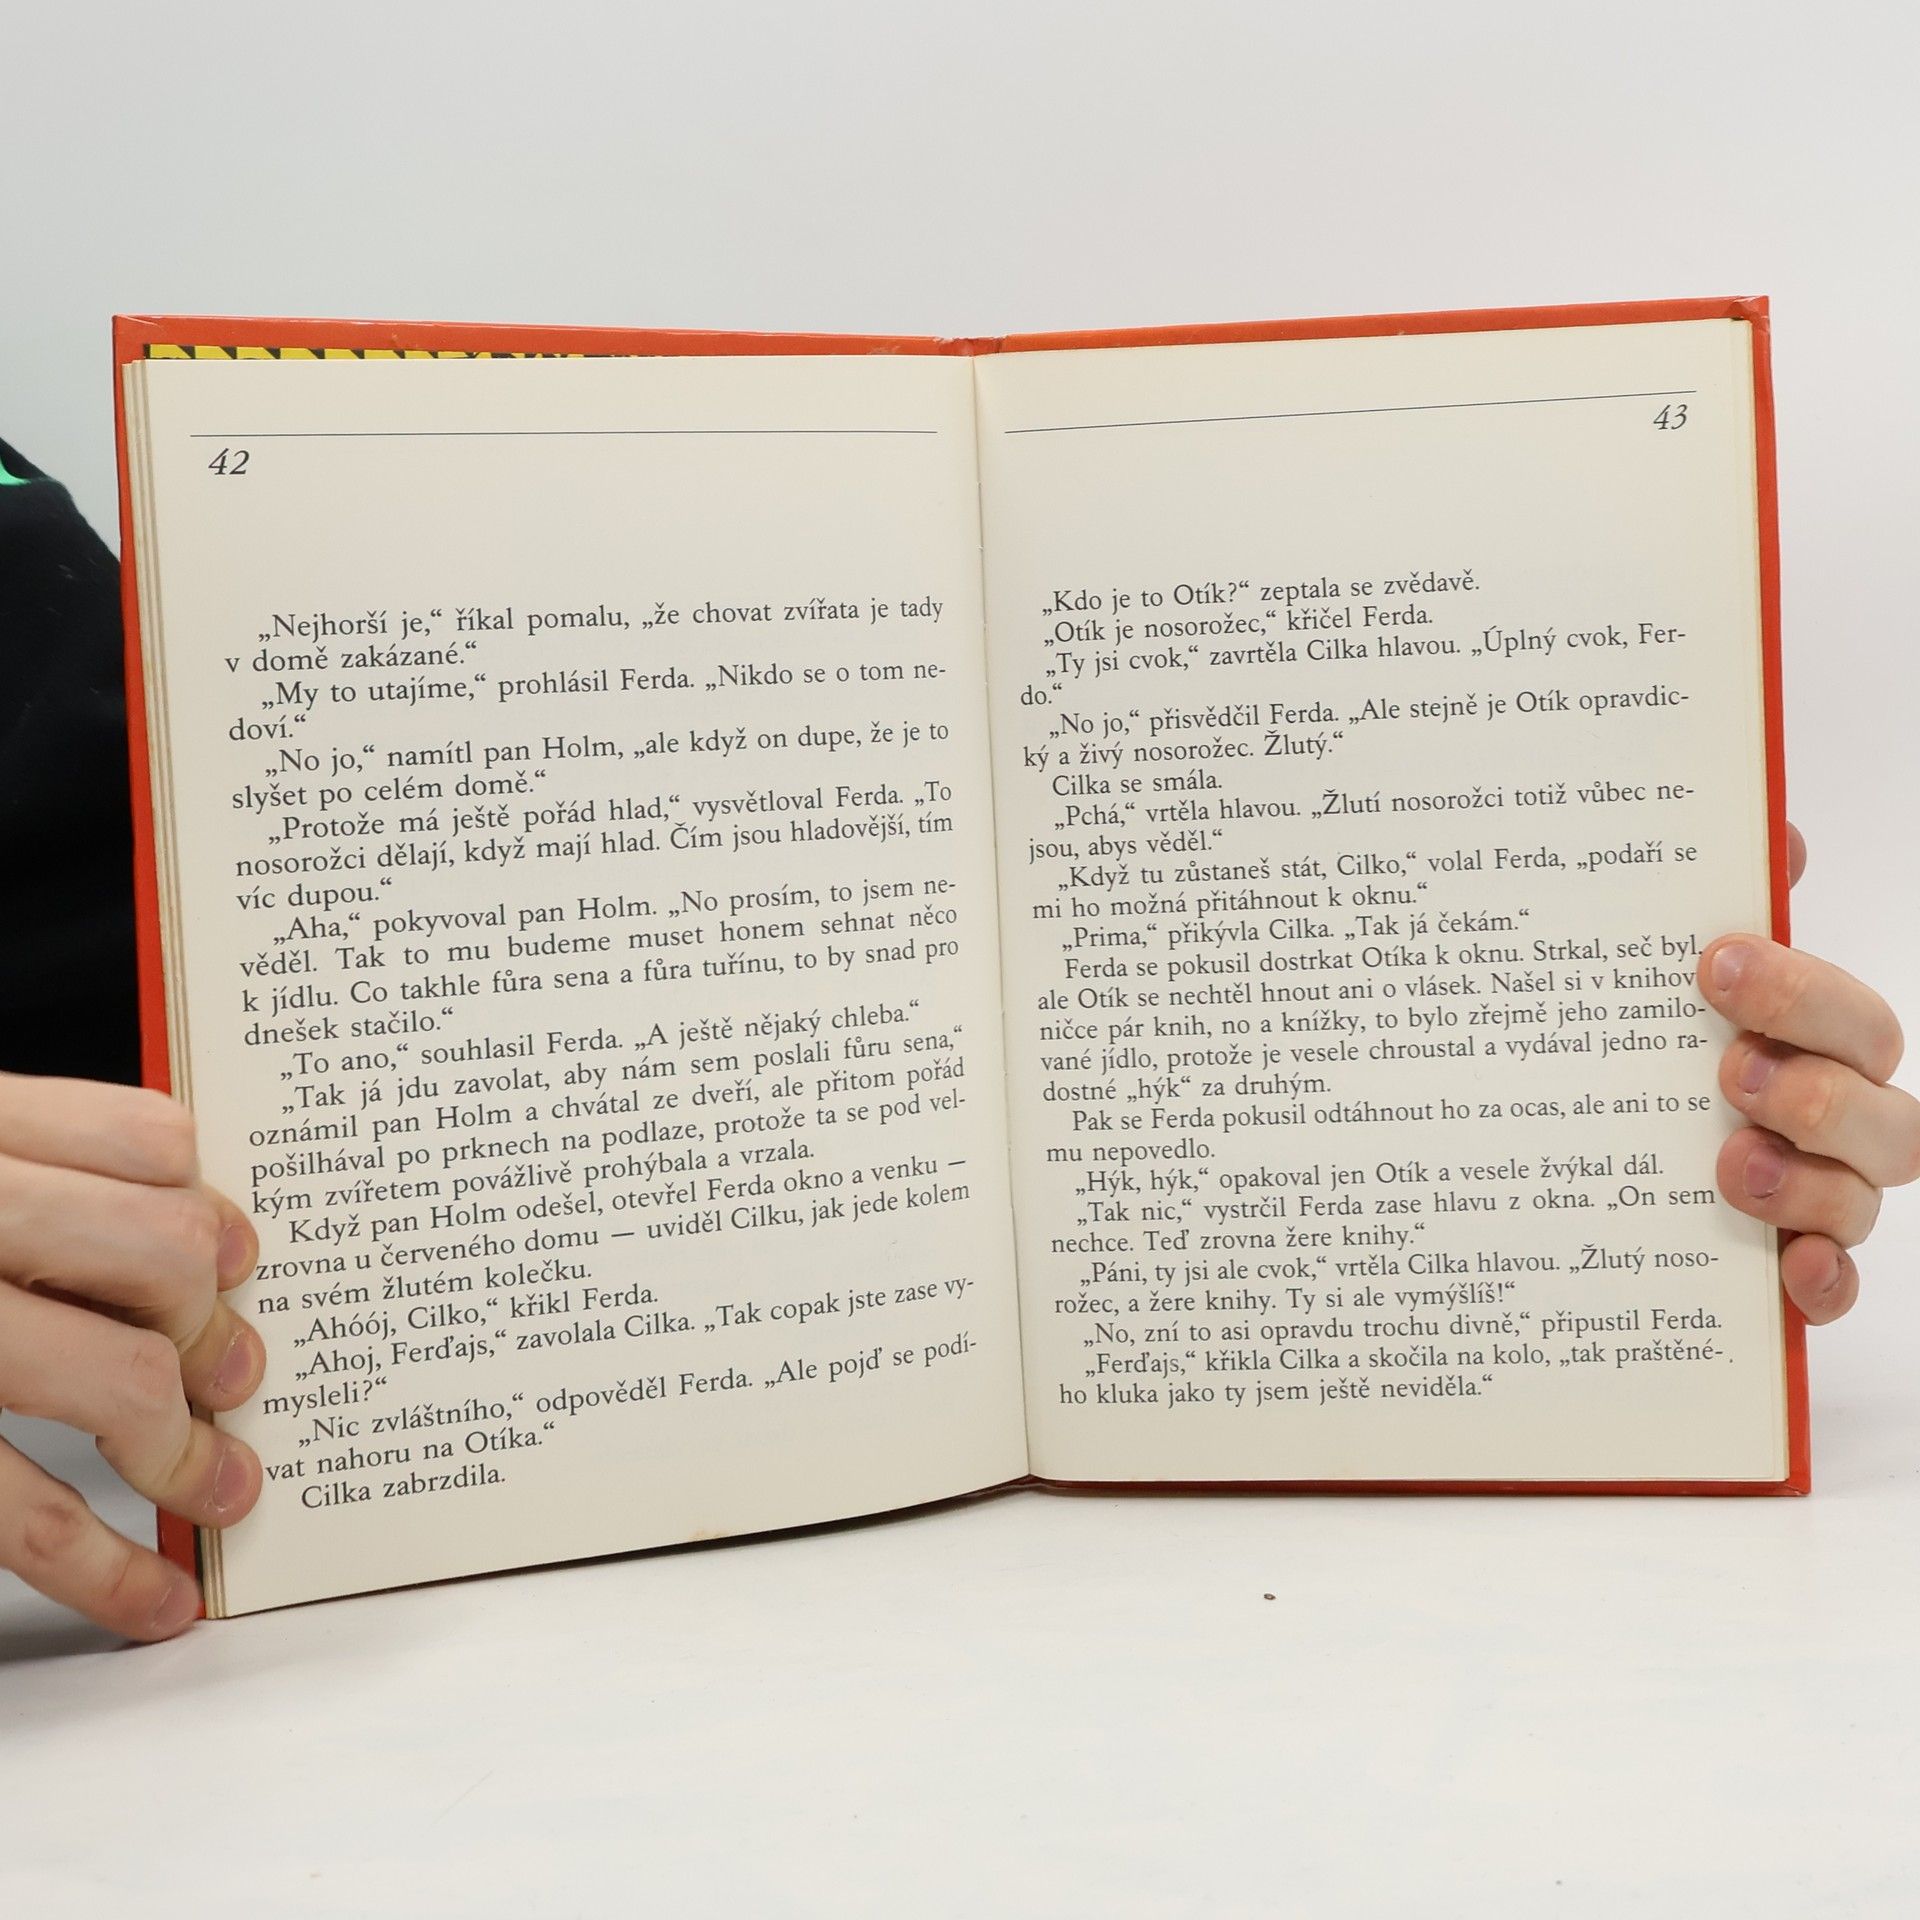 42
„Nejhorší je,“ říkal pomalu, „že chovat zvířata je tady
v domě zakázané.“
„My to utajíme,“ prohlásil Ferda. „Nikdo se o tom ne-
doví.“
„No jo,“ namítl pan Holm, „ale když on dupe, že je to
slyšet po celém domě.“
„Protože má ještě pořád hlad,“ vysvětloval Ferda. „To
nosorožci dělají, když mají hlad. Čím jsou hladovější, tím
víc dupou.“
„Aha,“ pokyvoval pan Holm. „No prosím, to jsem ne-
věděl. Tak to mu budeme muset honem sehnat něco
k jídlu. Co takhle fůra sena a fůra tuřínu, to by snad pro
dnešek stačilo.“
„To ano,“ souhlasil Ferda. „A ještě nějaký chleba.“
„Tak já jdu zavolat, aby nám sem poslali fůru sena,“
oznámil pan Holm a chvátal ze dveří, ale přitom pořád
pošilhával po prknech na podlaze, protože ta se pod vel-
kým zvířetem povážlivě prohýbala a vrzala.
Když pan Holm odešel, otevřel Ferda okno a venku —
zrovna u červeného domu — uviděl Cilku, jak jede kolem
na svém žlutém kolečku.
„Ahóój, Cilko,“ křikl Ferda.
„Ahoj, Ferďajs,“ zavolala Cilka. „Tak copak jste zase vy-
mysleli?“
„Nic zvláštního,“ odpověděl Ferda. „Ale pojď se podí-
vat nahoru na Otíka.“
Cilka zabrzdila.
43
„Kdo je to Otík?“ zeptala se zvědavě.
„Otík je nosorožec,“ křičel Ferda.
„Ty jsi cvok,“ zavrtěla Cilka hlavou. „Úplný cvok, Fer-
do.“
„No jo,“ přisvědčil Ferda. „Ale stejně je Otík opravdic-
ký a živý nosorožec. Žlutý.“
Cilka se smála.
„Pchá,“ vrtěla hlavou. „Žlutí nosorožci totiž vůbec ne-
jsou, abys věděl.“
„Když tu zůstaneš stát, Cilko,“ volal Ferda, „podaří se
mi ho možná přitáhnout k oknu.“
„Prima,“ přikývla Cilka. „Tak já čekám.“
Ferda se pokusil dostrkat Otíka k oknu. Strkal, seč byl,
ale Otík se nechtěl hnout ani o vlásek. Našel si v knihov
ničce pár knih, no a knížky, to bylo zřejmě jeho zamilo-
vané jídlo, protože je vesele chroustal a vydával jedno ra-
dostné „hýk“ za druhým.
Pak se Ferda pokusil odtáhnout ho za ocas, ale ani to se
mu nepovedlo.
„Hýk, hýk,“ opakoval jen Otík a vesele žvýkal dál.
„Tak nic,“ vystrčil Ferda zase hlavu z okna. „On sem
nechce. Teď zrovna žere knihy.“
„Páni, ty jsi ale cvok,“ vrtěla Cilka hlavou. „Žlutý noso-
rožec, a žere knihy. Ty si ale vymýšlíš!“
„No, zní to asi opravdu trochu divně,“ připustil Ferda.
„Ferďajs,“ křikla Cilka a skočila na kolo, „tak praštěné-
ho kluka jako ty jsem ještě neviděla.“